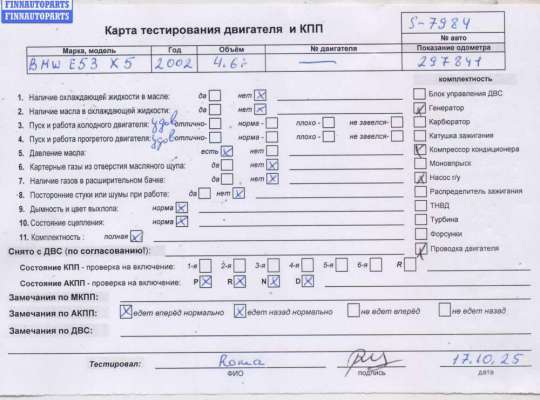 FINNAUTOPARTS
FINNAUTOPARTS
Карта тестирования двигателя и КПП
S-7984
№ авто
Марка, модель Год Объём № двигателя Показание одометра
BMW E53 X5 2002 4.6i — 297841
комплектность
1. Наличие охлаждающей жидкости в масле: да нет
2. Наличие масла в охлаждающей жидкости: да нет
3. Пуск и работа холодного двигателя: удов отлично- норма - плохо - не завелся-
4. Пуск и работа прогретого двигателя: удов отлично- норма - плохо - не завелся-
5. Давление масла: есть нет
6. Картерные газы из отверстия масляного щупа: да нет
7. Наличие газов в расширительном бачке: да нет
8. Посторонние стуки или шумы при работе: да нет
9. Дымность и цвет выхлопа: норма
10. Состояние сцепления: норма
11. Комплектность : полная
Блок управления ДВС
Генератор
Карбюратор
Катушка зажигания
Компрессор кондиционера
Моновпрыск
Насос г/у
Распределитель зажигания
ТНВД
Турбина
Форсунки
Проводка двигателя
Снято с ДВС (по согласованию!):
Состояние КПП - проверка на включение: 1-я 2-я 3-я 4-я 5-я 6-я R
Состояние АКПП - проверка на включение: P R N D
Замечания по МКПП:
Замечания по АКПП: едет вперёд нормально едет назад нормально не едет вперёд не едет назад
Замечания по ДВС:
Тестировал: Roma 17.10.25
ФИО подпись дата